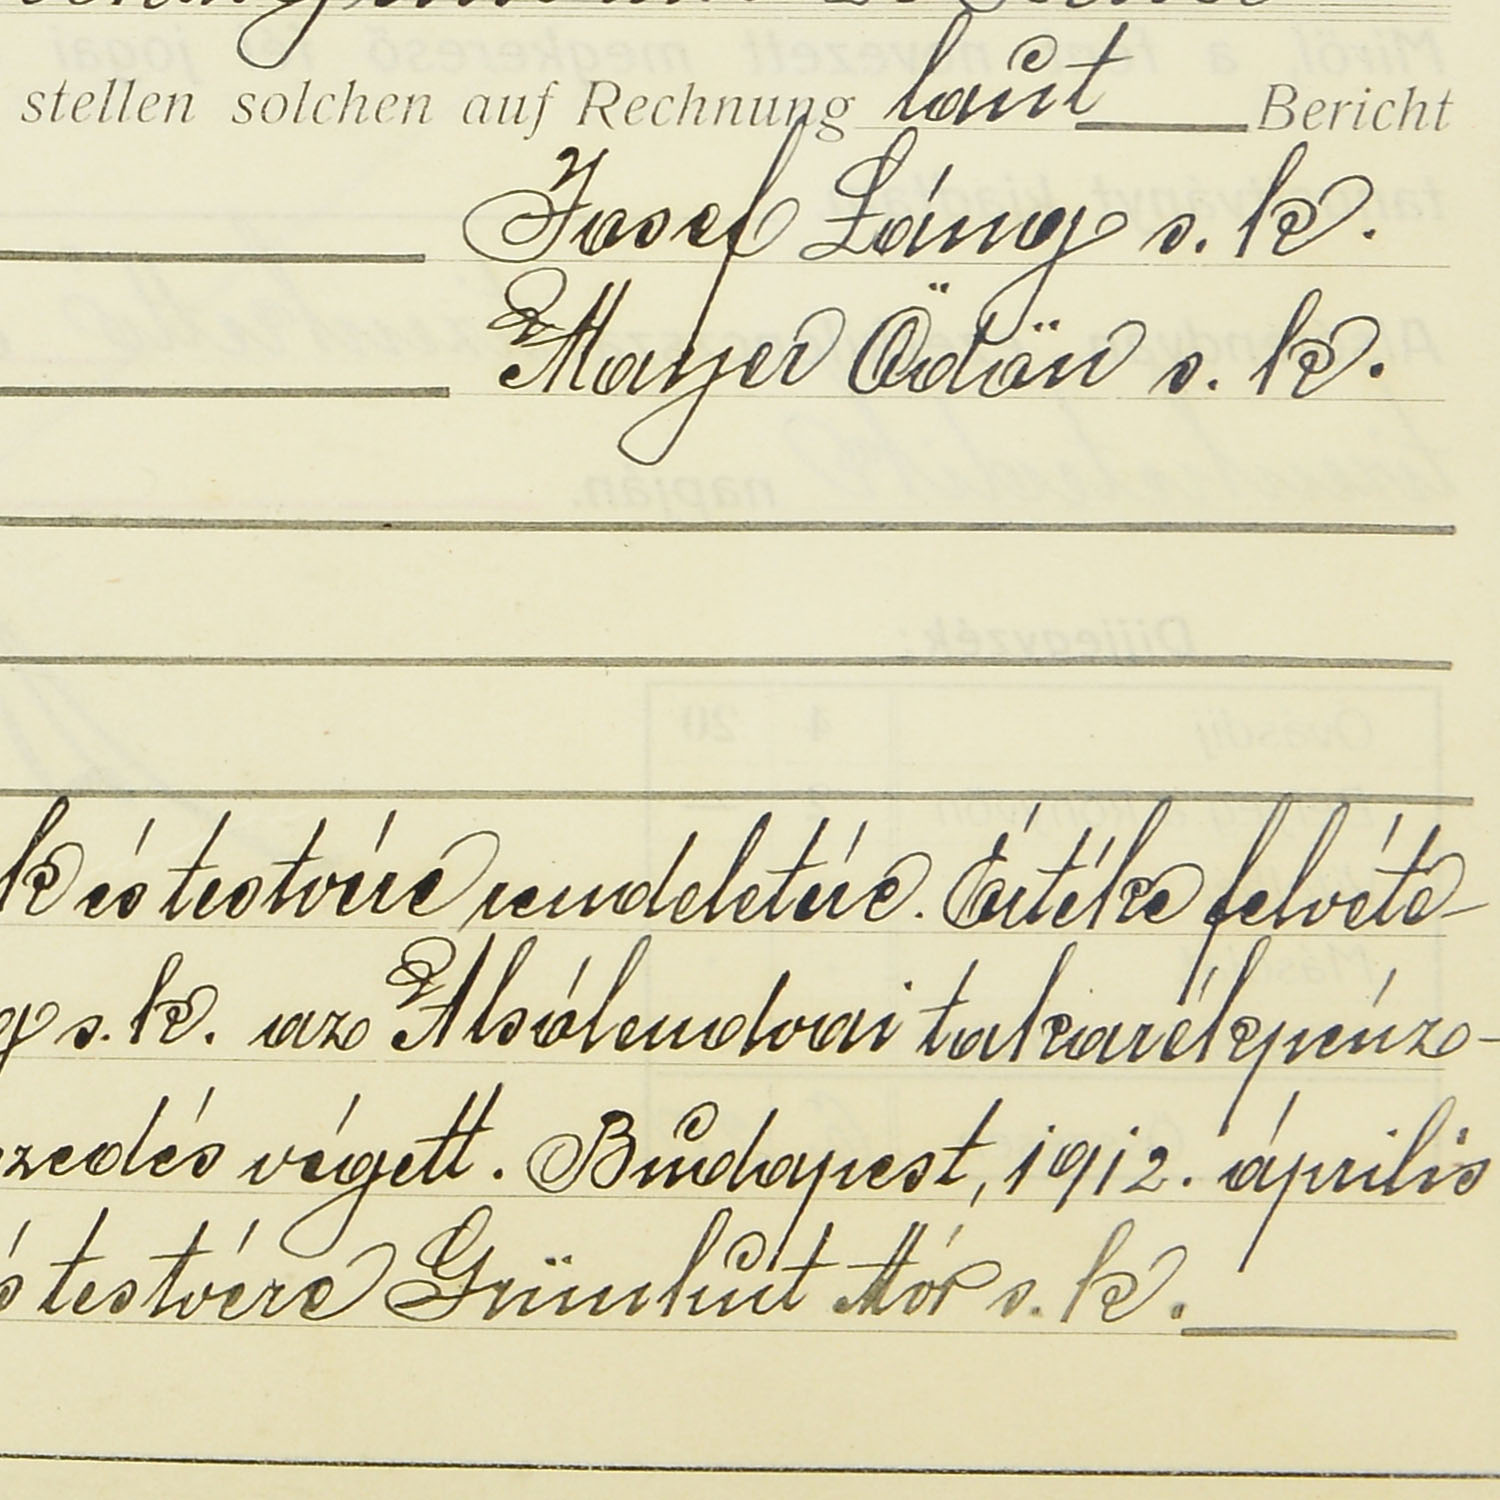 stellen solchen auf Rechnung laut Bericht
Josef Láng s. k.
Mayer Ödön s. k.
k és testvére rendeletére. Értéke felvéte-
g s. k. az Alsólendvai takarékpénz-
zedés végett. Budapest, 1912. április
s testvére Grünhut Mór s. k.